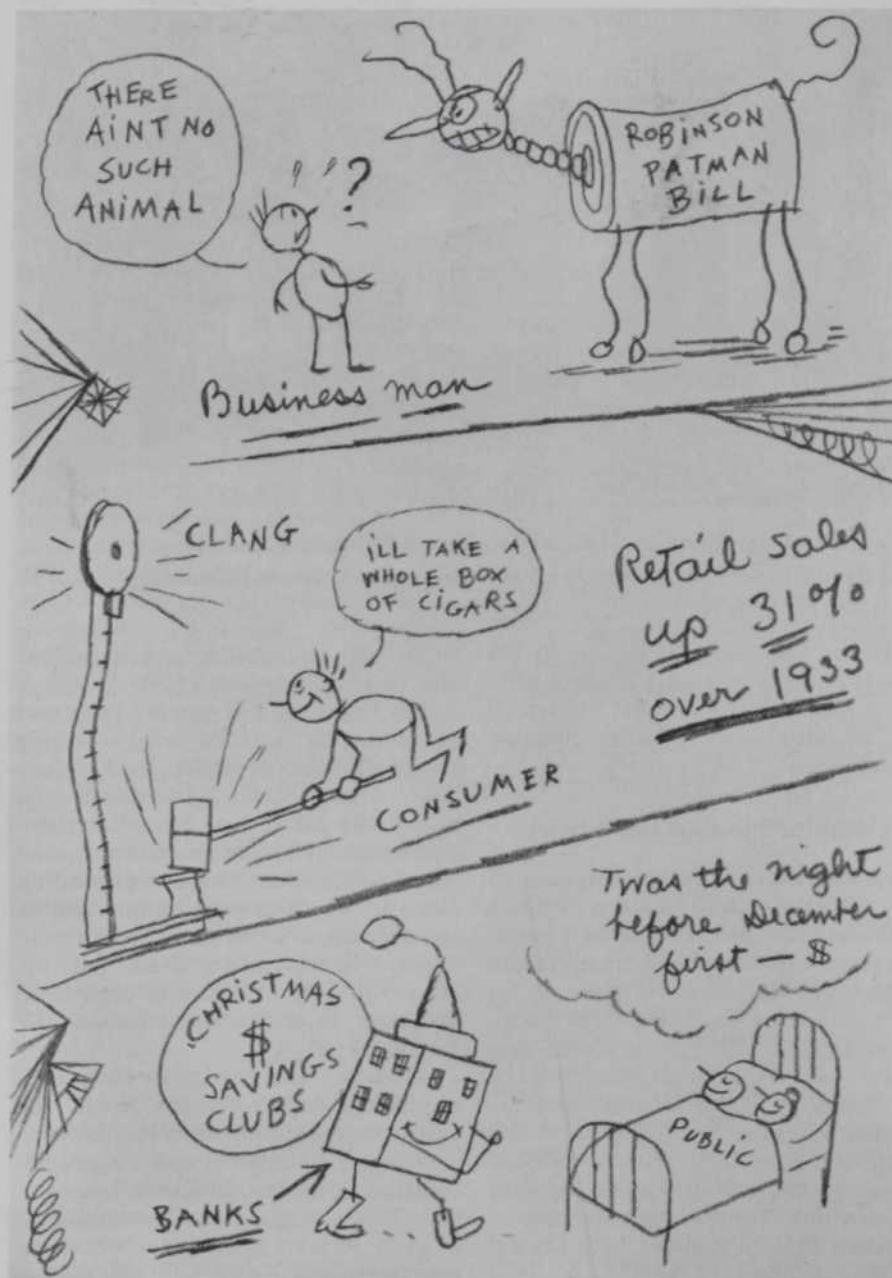 THERE
AINT NO
SUCH
ANIMAL
?
ROBINSON
PATMAN
BILL
Business man
CLANG
ILL TAKE A
WHOLE BOX
OF CIGARS
Retail sales
up 31%
over 1933
CONSUMER
Twas the night
before December
first — $
CHRISTMAS
$
SAVINGS
CLUBS
BANKS
PUBLIC